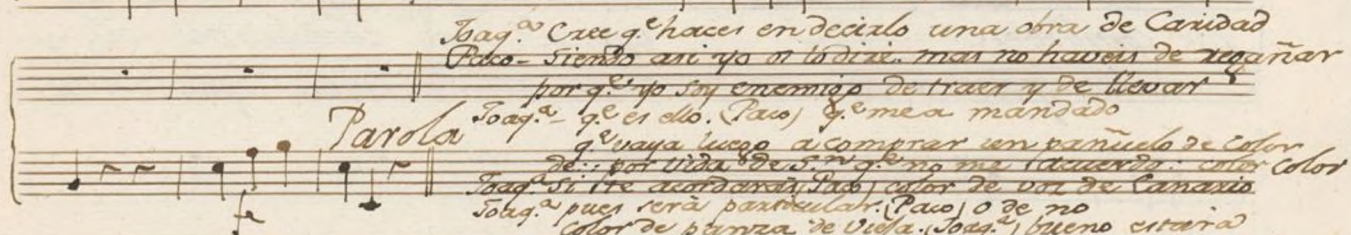 Joaq.ª Cree q.e haces en decirlo una obra de Caridad
Paco - Siendo asi yo os lo dire. mas no haveis de regañar
por q.e yo soy enemigo de traer y de llevar
Parola
Joaq.ª - q.e es ello. (Paco) q.e me a mandado
q.e vaya luego a comprar un pañuelo de color
de: por vida de S.n q.e no me acuerdo: color color
Joaq.ª Si te acordaras (Paco) color de voz de Canario
Joaq.ª pues será particular. (Paco) o de no
Color de panza de Viela. (Joaq.ª) bueno estará
fe